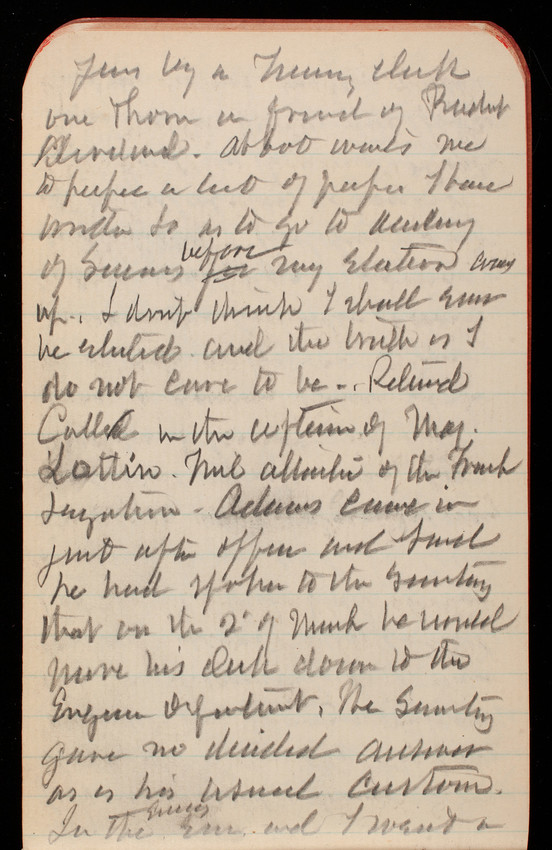 by a Treasury clerk
one Thom a friend of Presdt
Cleveland. Abbot wants me
to prepare a list of papers I have
written so as to go to Academy
of Sciences before my election comes
up. I dont think I shall ever
be elected and the truth is I
do not care to be.
Called in the afternoon of Maj.
Lottin. Mil attache of the French
Legation - Adams came in
just after office and said
he had spoken to the Secretary
that on the 2d of March he would
move his desk down to the
Engineer Department. The Secretary
gave no decided answer
as is his usual custom.
In the Evening Em and I went